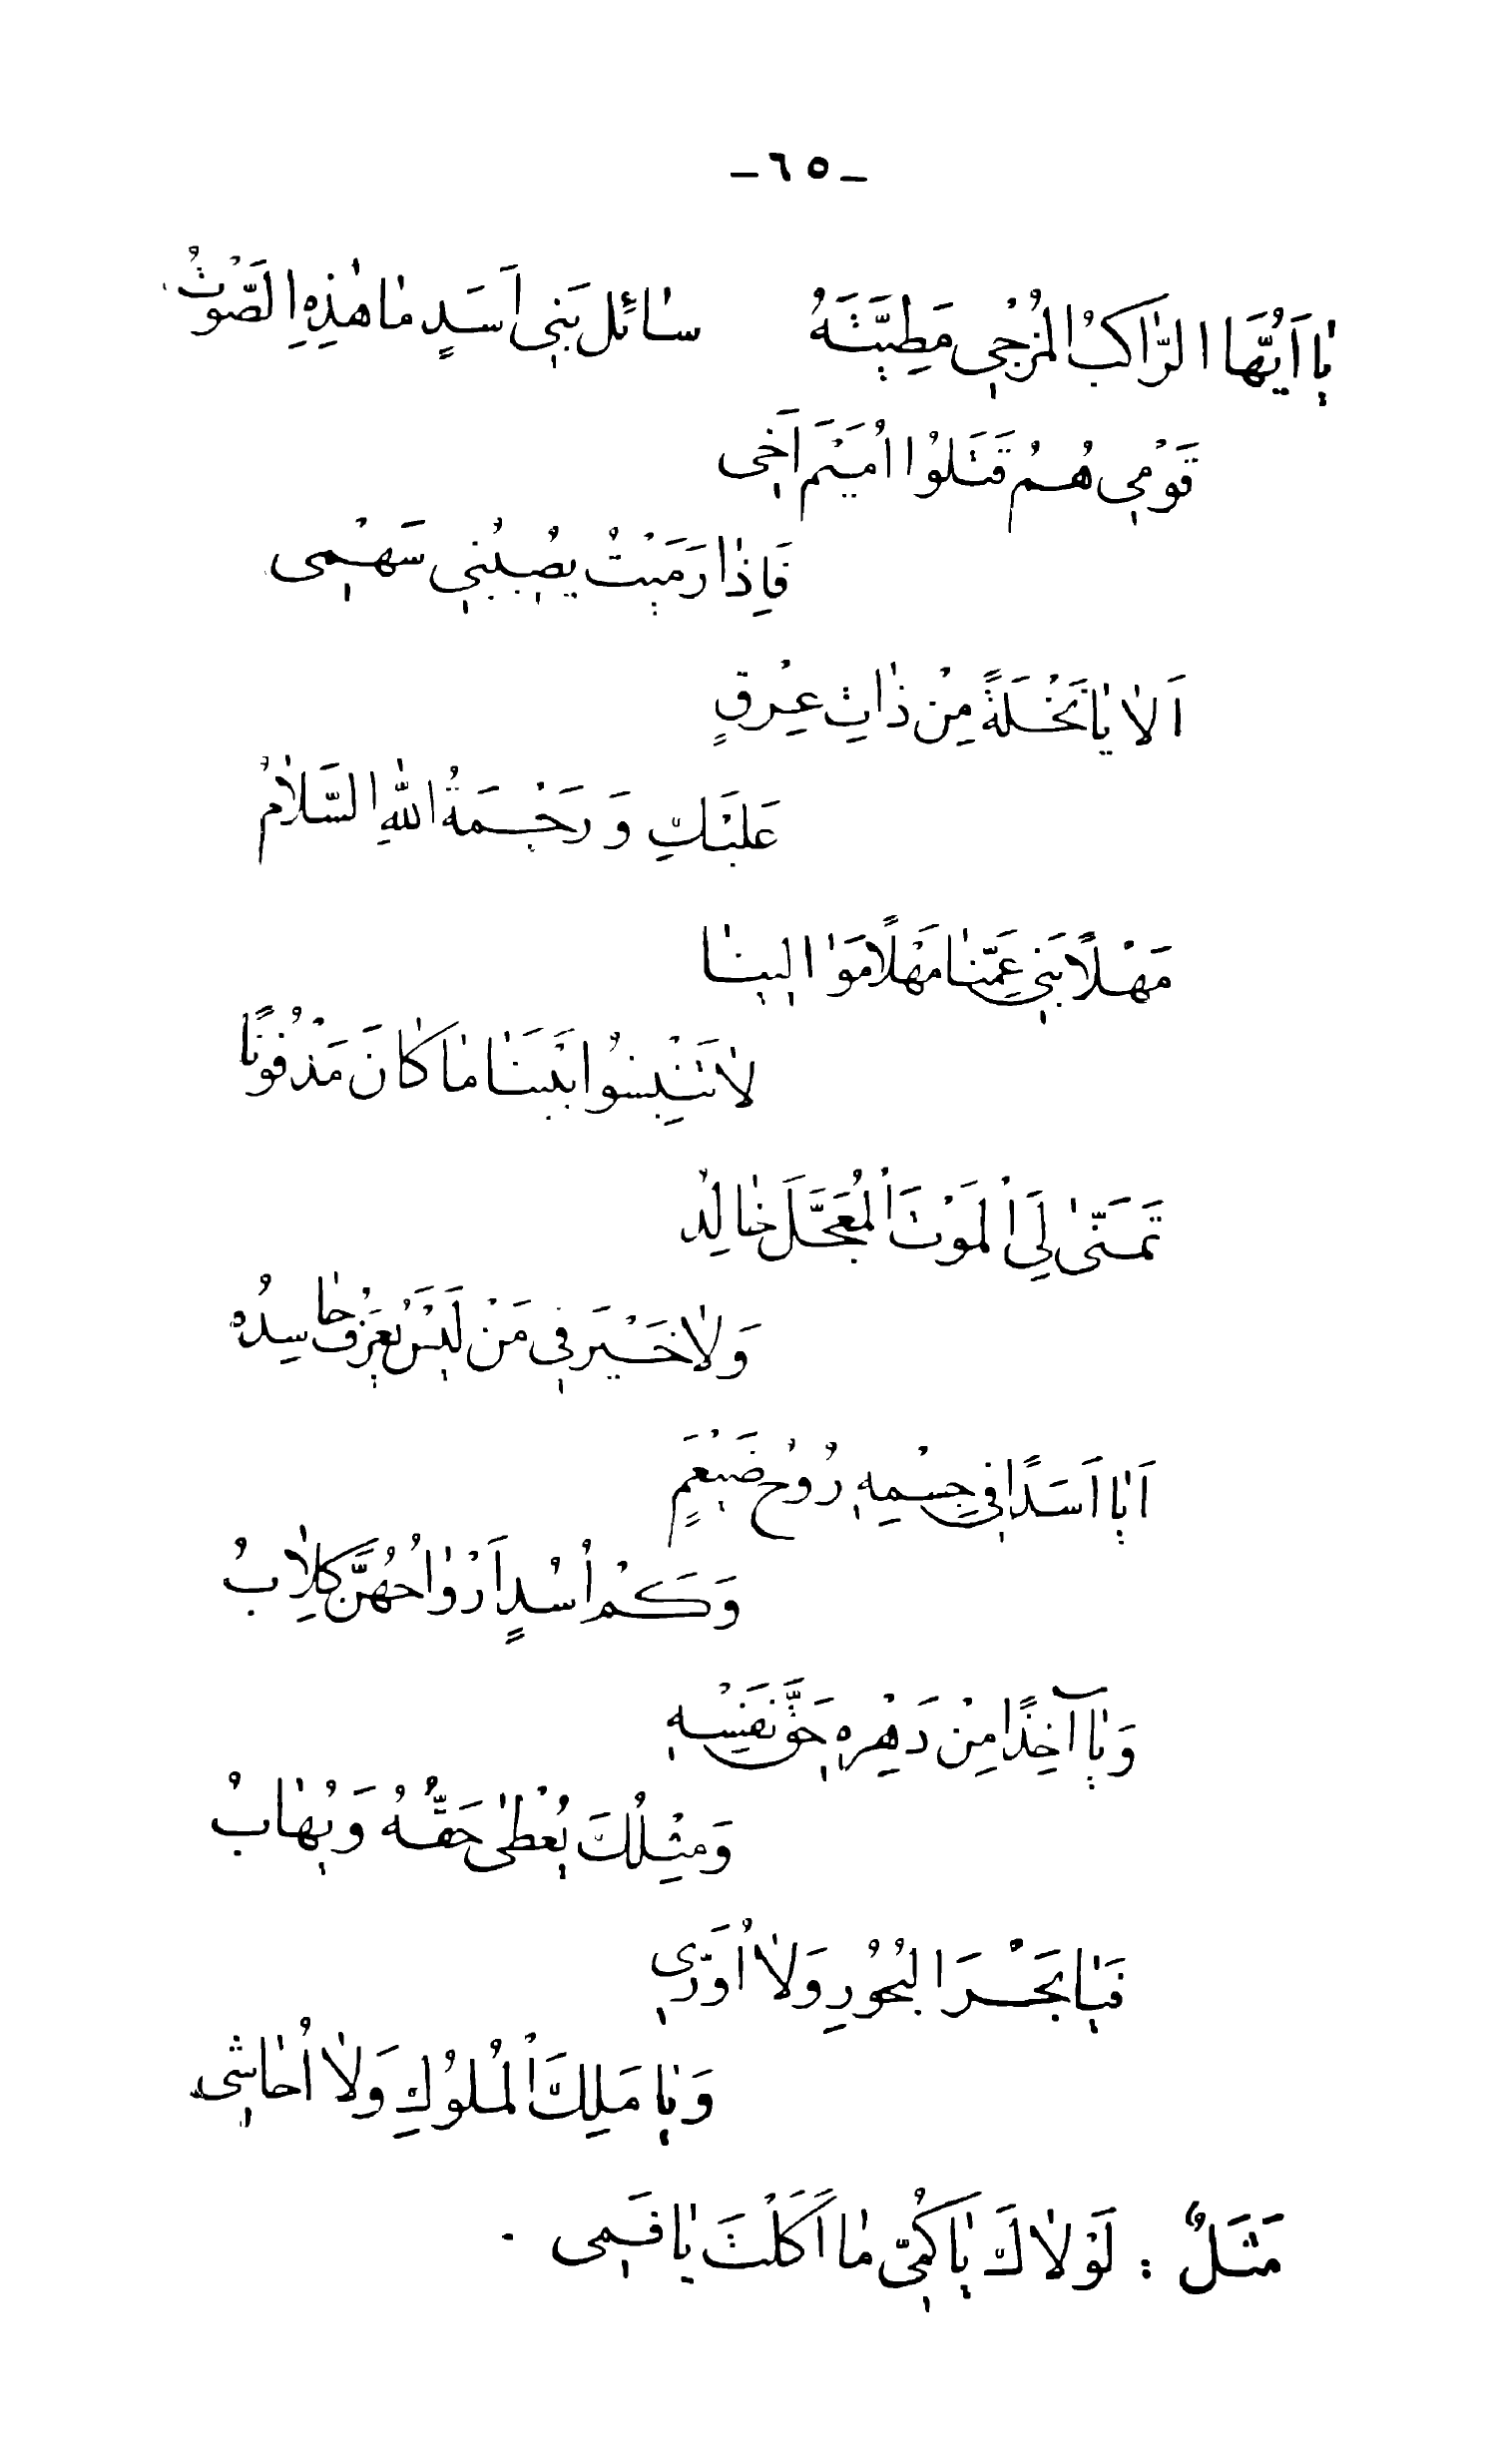 -٦٥-
يَا اَيُّهَا الرَّاكِبُ الْمُزْجِي مَطِيَّتَهُ سَائِل بَنِي اَسَدٍ مَا هَذِهِ الصَّوْتُ
قَوْمِي هُمُ قَتَلُوا اُمَيْمَ اَخِي
فَاِذَا رَمَيْتُ يُصِيبُنِي سَهْمِي
اَلَا يَا نَخْلَةً مِنْ ذَاتِ عِرْقٍ
عَلَيْكِ وَ رَحْمَةُ اللهِ السَّلَامُ
مَهْلًا بَنِي عَمِّنَا مَهْلًا مَوَالِينَا
لَا تَنْبِشُوا بَيْنَنَا مَا كَانَ مَدْفُونًا
تَمَنَّى لِيَ الْمَوْتَ الْمُعَجَّلَ خَالِدٌ
وَلَا خَيْرَ فِي مَنْ لَيْسَ يُعْرَفُ حَاسِدُهُ
اَيَا اَسَدًا فِي جِسْمِهِ رُوْحُ ضَيْغَمٍ
وَكَمْ اُسْدٍ اَرْوَاحُهُنَّ كِلَابُ
وَيَا آخِذًا مِنْ دَهْرِهِ حَقَّ نَفْسِهِ
وَمِثْلُكَ يُعْطَى حَقَّهُ وَيُهَابُ
فَيَا بَحْرَ الْبُحُورِ وَلَا اُوَرِّي
وَيَا مَلِكَ الْمُلُوكِ وَلَا اُحَاشِي
مَثَلٌ : لَوْلَاكَ يَا كُمِّي مَا اَكَلْتَ يَا فَمِي .